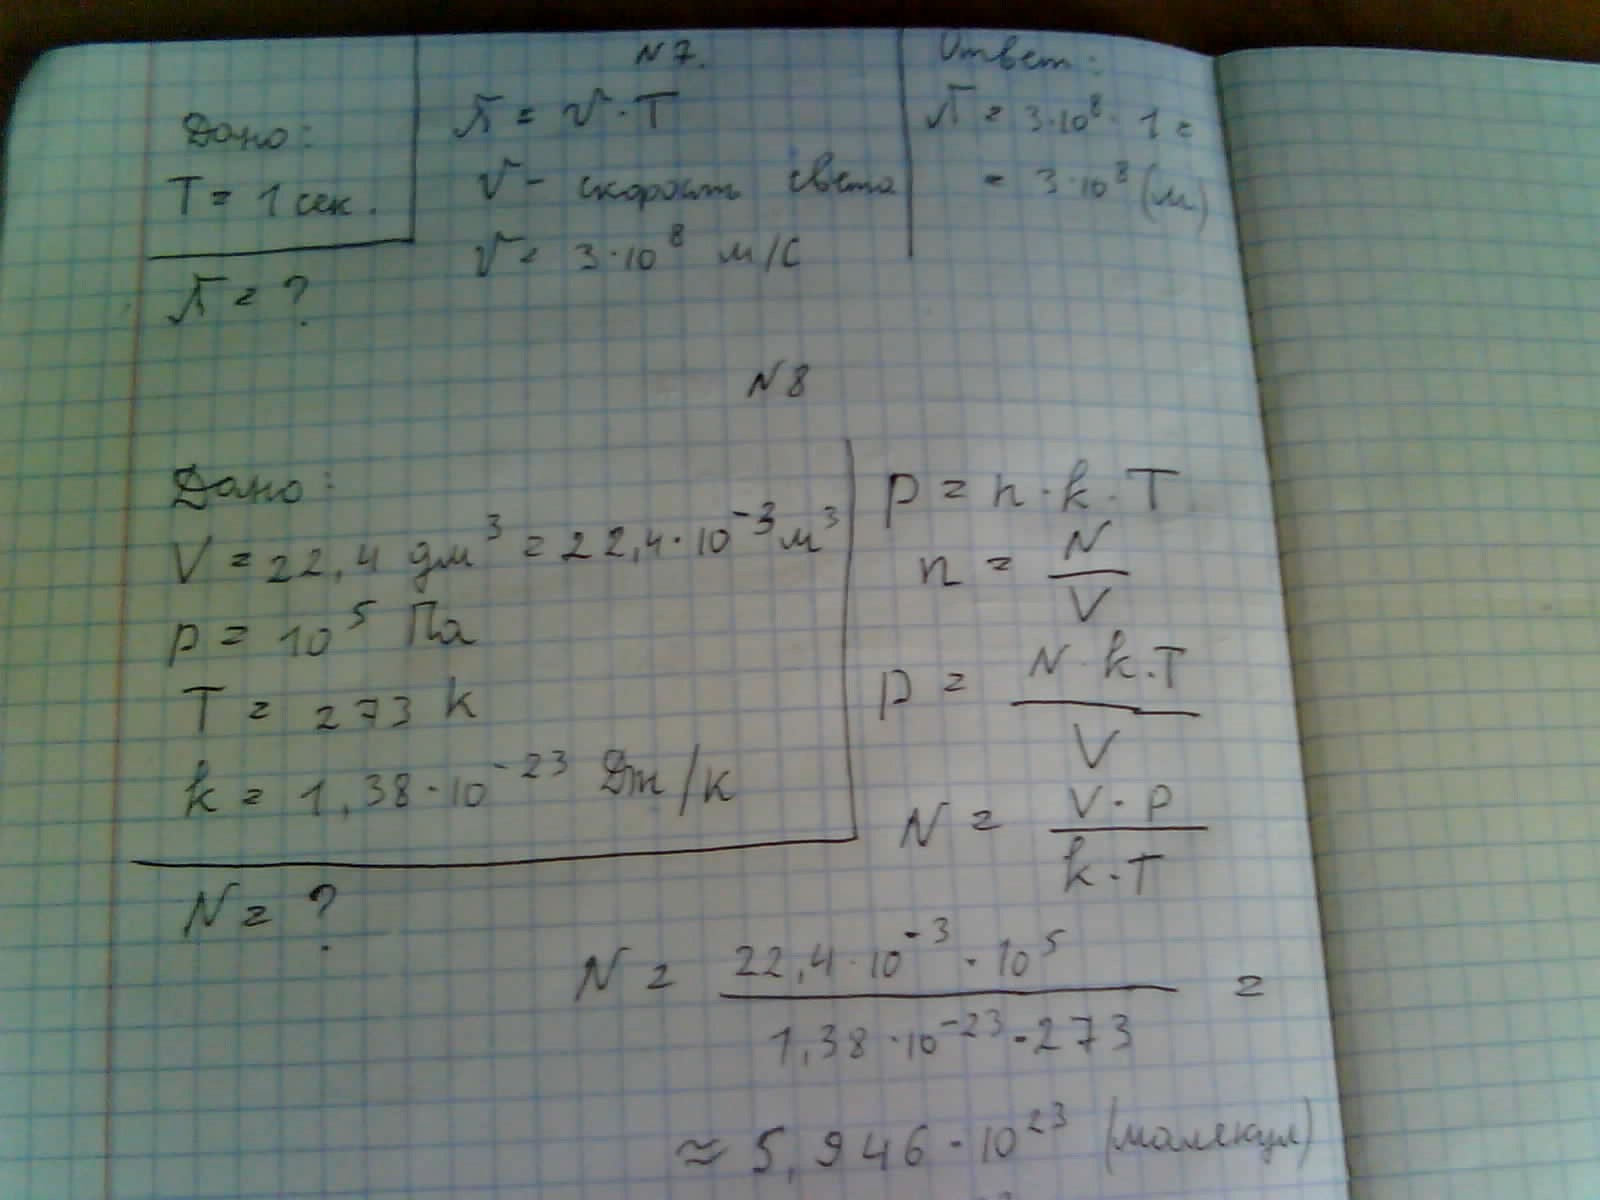 N7.
Дано:
T = 1 сек.
λ = ?
λ = v · T
v - скорость света
v = 3·10⁸ м/с
Ответ:
λ = 3·10⁸ · 1 =
= 3·10⁸ (м)
N8
Дано:
V = 22,4 дм³ = 22,4·10⁻³ м³
p = 10⁵ Па
T = 273 k
k = 1,38·10⁻²³ Дж/к
N = ?
p = n · k · T
n = N / V
p = N · k · T / V
N = V · p / k · T
N = 22,4·10⁻³ · 10⁵ / 1,38·10⁻²³ · 273 =
≈ 5,946 · 10²³ (молекул)